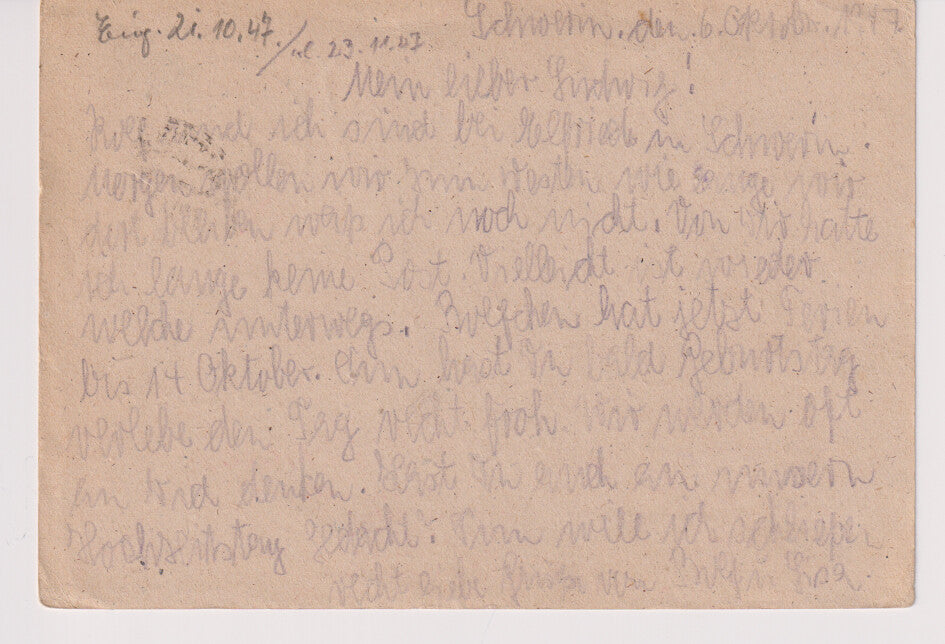 Eing. 21.10.47. /. 23.11.47
Schwerin, den 6. Oktober 1947
Mein lieber Ludwig!
Rolf und ich sind bei Elfriede in Schwerin.
Morgen wollen wir zum Westen wie lange wir
dort bleiben weiß ich noch nicht. Von Dir hatte
ich lange keine Post. Vielleicht ist wieder
welche unterwegs. Rolfchen hat jetzt Ferien
bis 14 Oktober. Nun hast Du bald Geburtstag
verlebe den Tag recht froh. Wir werden oft
an Dich denken. Hast Du auch an unsern
Hochzeitstag gedacht? Nun will ich schließen
recht viele Grüße von Rolf u.